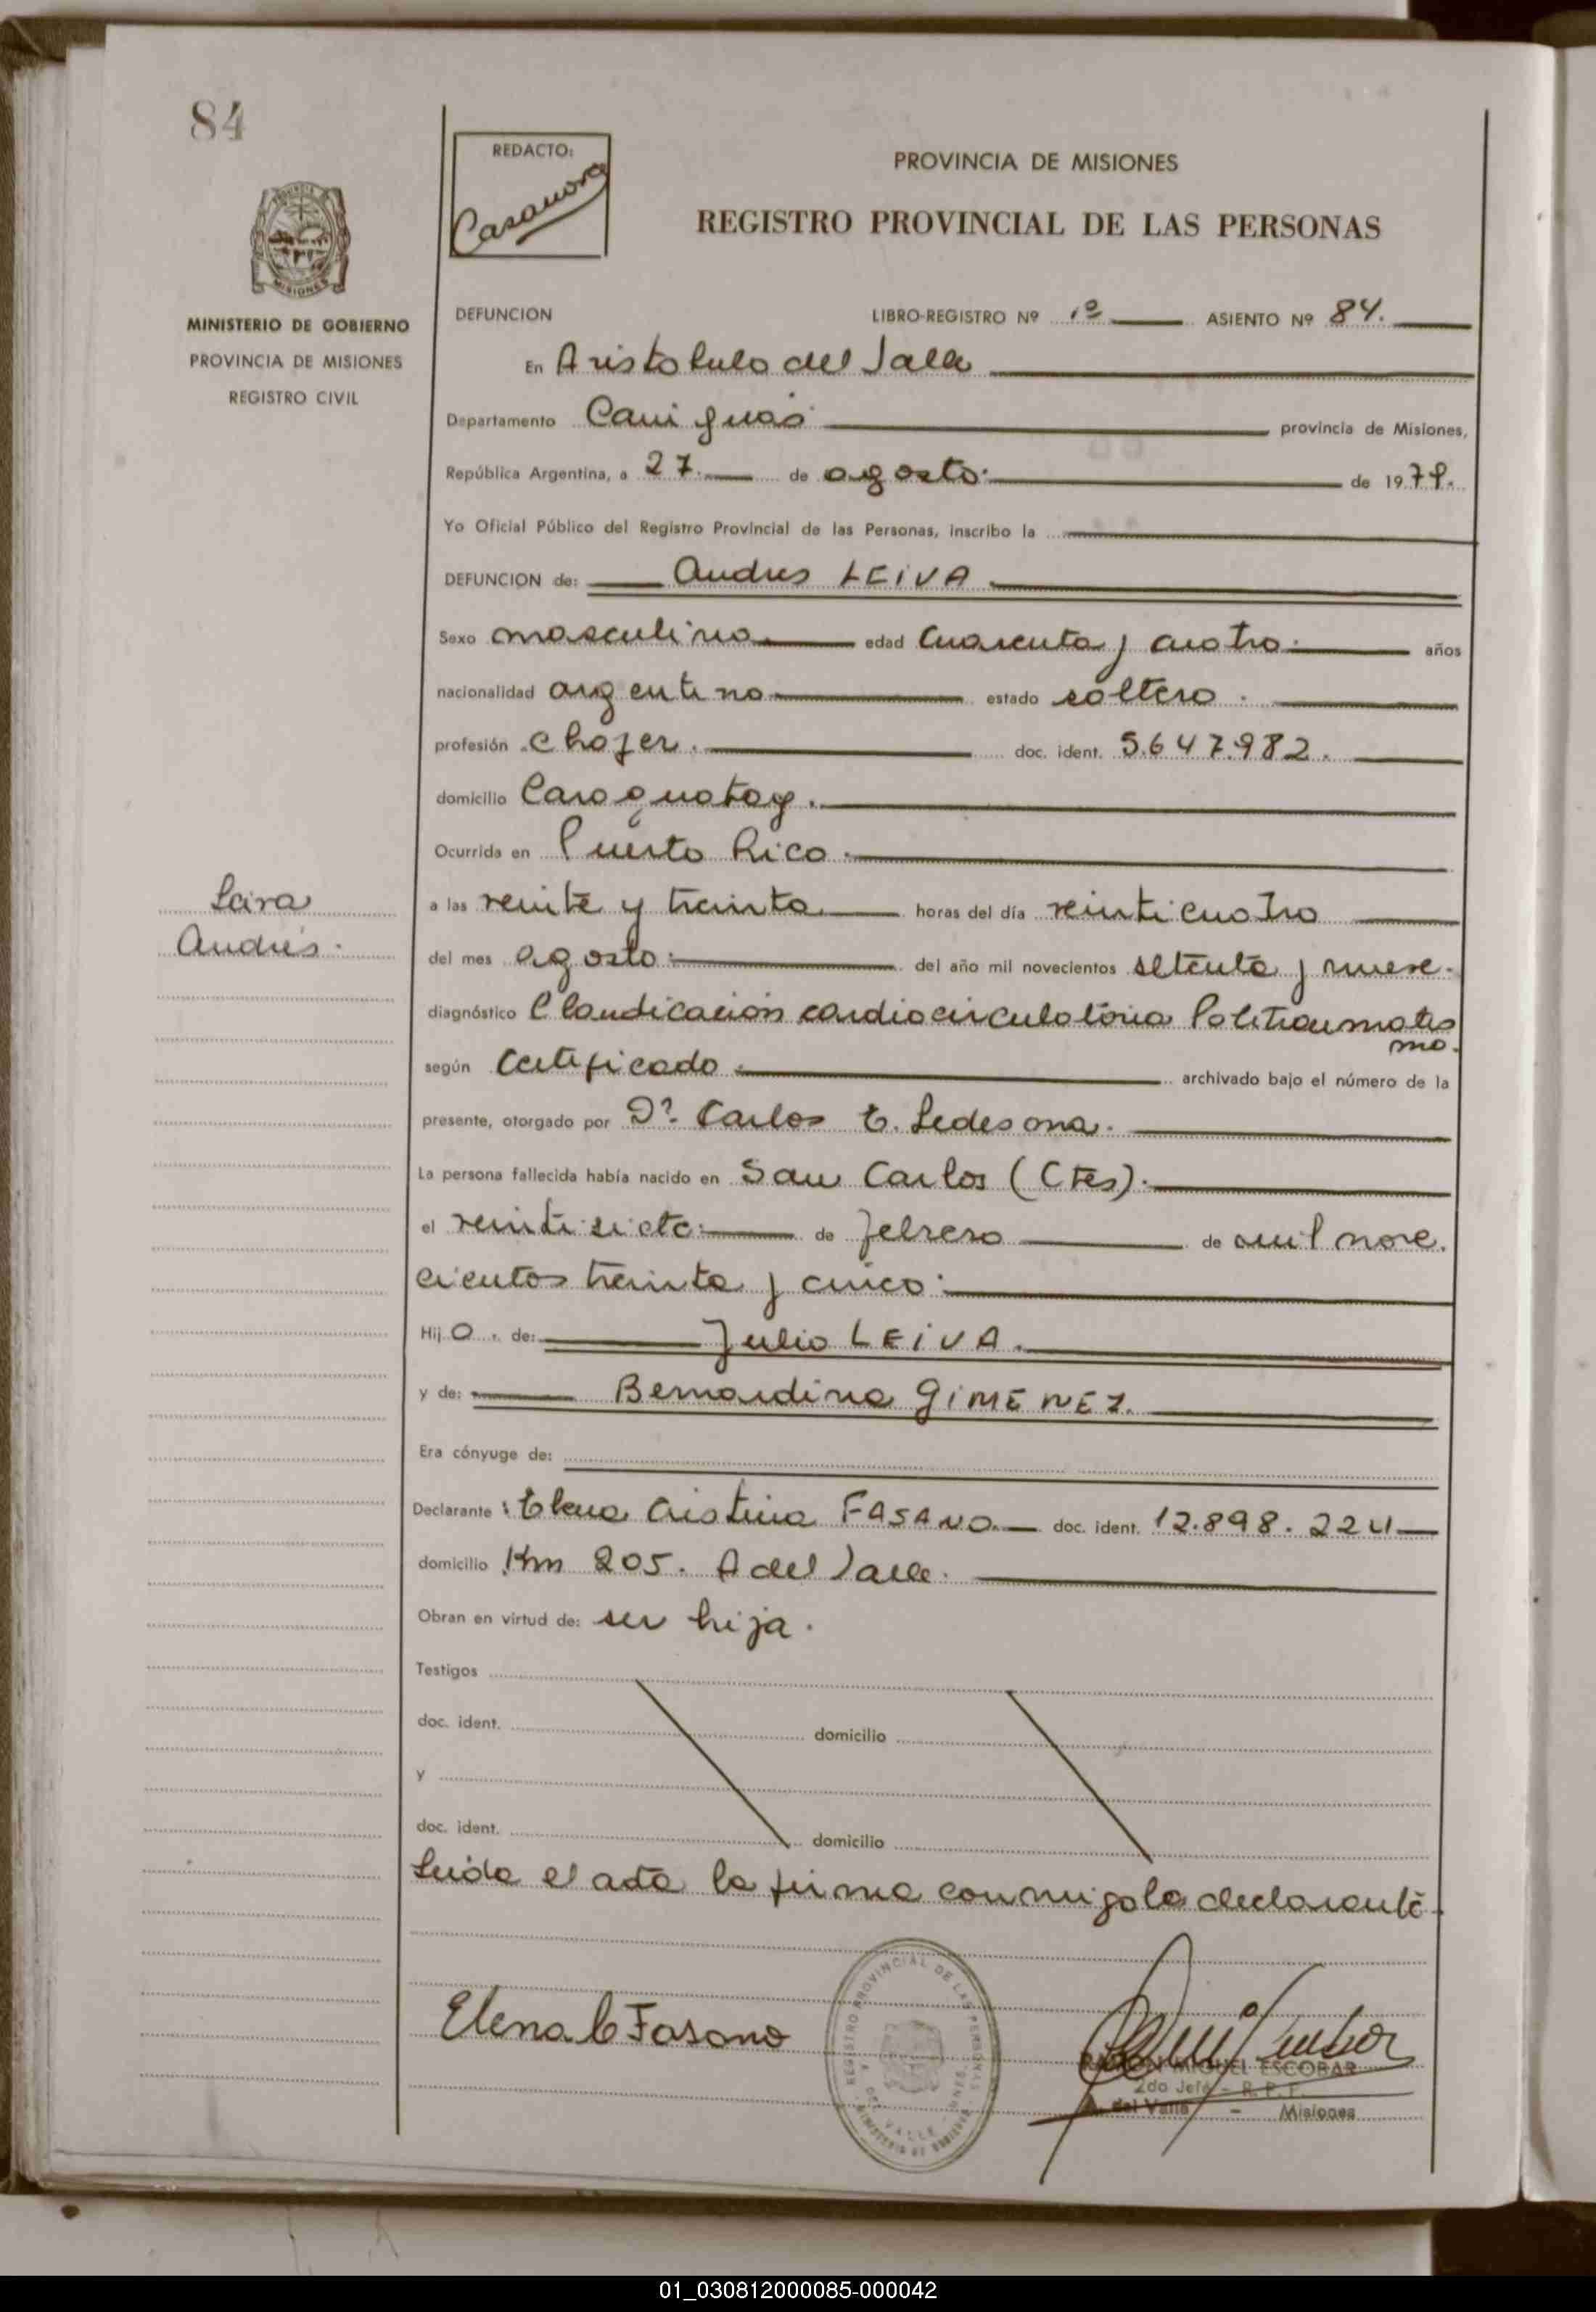 84
REDACTO:
Casanova
PROVINCIA DE MISIONES
REGISTRO PROVINCIAL DE LAS PERSONAS
MISIONES
MINISTERIO DE GOBIERNO
PROVINCIA DE MISIONES
REGISTRO CIVIL
DEFUNCION LIBRO-REGISTRO Nº 1º ASIENTO Nº 84.
En Aristobulo del Valle
Departamento Cainguas provincia de Misiones,
República Argentina, a 27. de agosto. de 1979.
Yo Oficial Público del Registro Provincial de las Personas, inscribo la
DEFUNCION de: Andres LEIVA.
Sexo masculino edad cuarenta y cuatro. años
nacionalidad argentino estado soltero.
profesión chofer. doc. ident. 5.647.982.
domicilio Caraguatay.
Ocurrida en Puerto Rico.
a las veinte y treinta horas del día veinticuatro
del mes agosto. del año mil novecientos setenta y nueve.
diagnóstico Claudicación cardiocirculatoria Politraumatis
mo.
según Certificado. archivado bajo el número de la
presente, otorgado por Dr. Carlos E. Ledesma.
La persona fallecida había nacido en San Carlos (Ctes).
el veintisiete. de febrero de mil nove.
cientos treinta y cinco.
Hij o. de: Julio LEIVA.
y de: Bernardina GIMENEZ.
Era cónyuge de:
Declarante: Elena Cristina FASANO. doc. ident. 12.898.224
domicilio Km 205. A del Valle.
Obran en virtud de: ser hija.
Testigos
doc. ident. domicilio
y
doc. ident. domicilio
Leida el acta la firma conmigo la declarante.
Leiva
Andrés.
Elena C Fasano
REGISTRO PROVINCIAL DE LAS PERSONAS
DEL VALLE
MINISTERIO DE GOBIERNO
RAMON MIGUEL ESCOBAR
2do Jefe - R. P. P.
A. del Valle - Misiones
01_030812000085-000042